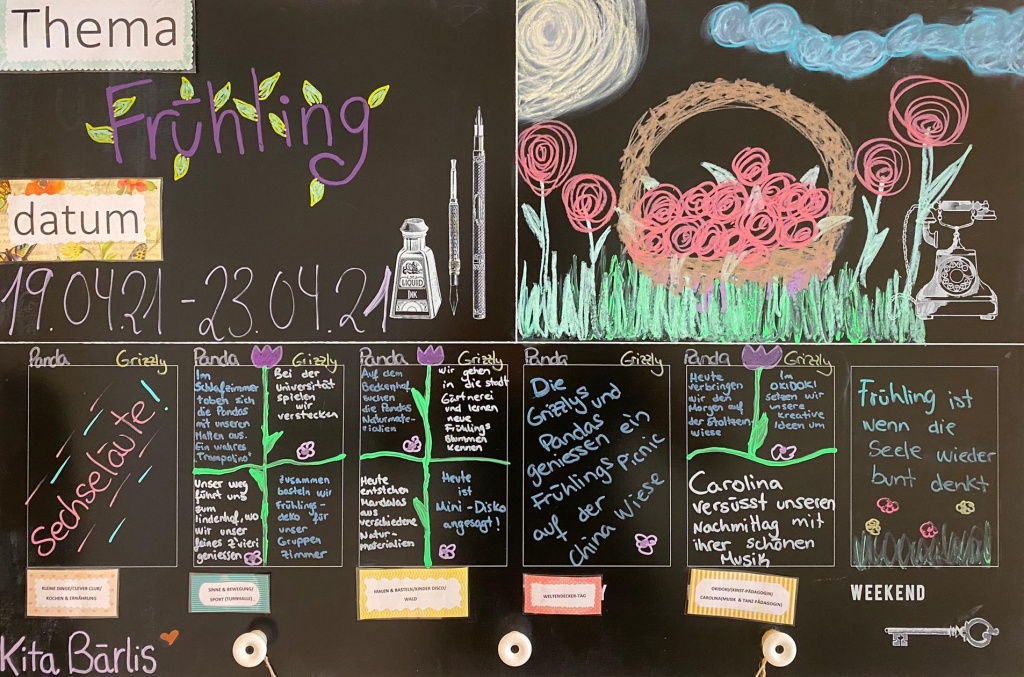 Thema
Frühling
datum
19.04.21 - 23.04.21
LIQUID
INK
Panda Grizzly
Sechseläute!
KLEINE DINGE/CLEVER CLUB/
KOCHEN & ERNÄHRUNG
Panda Grizzly
Im
Schlafzimmer
toben sich
die Pandas
mit unseren
Matten aus.
Ein wahres
Trampolino
Bei der
Universität
spielen
wir
verstecken
Unser weg
führt uns
zum
lindenhof, wo
wir unser
feines Zvieri
geniessen
Zusammen
basteln wir
Frühlings-
deko für
unser
Gruppen
Zimmer
SINNE & BEWEGUNG/
SPORT (TURNHALLE)
Panda Grizzly
Auf dem
Beckenhof
suchen
die Pandas
Naturmate-
rialien
wir gehen
in die stadt
Gärtnerei
und lernen
neue
Frühlings
Blummen
kennen
Heute
entstehen
Mandalas
aus
verschiedene
Natur-
materialien
Heute
ist
Mini-Disko
angesagt!
MALEN & BASTELN/KINDER DISCO/
WALD
Panda Grizzly
Die
Grizzlys und
Pandas
geniessen ein
Frühlings Picnic
auf der
China Wiese
WELTENDECKER-TAG
Panda Grizzly
Heute
verbringen
wir den
Morgen auf
der Stolzen-
wiese
Im
OKIDOKI
setzen wir
unsere
kreative
Ideen um
Carolina
versüsst unseren
Nachmittag mit
ihrer schönen
Musik
OKIDOKI(KUNST-PÄDAGOGIN)
CAROLINA(MUSIK & TANZ PÄDAGOGIN)
Frühling ist
wenn die
Seele wieder
bunt denkt
WEEKEND
Kita Bärlis